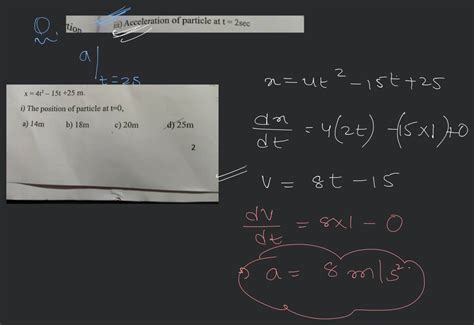 Q.
tion
iii) Acceleration of particle at t = 2sec
a|
t=2s
x = 4t² – 15t +25 m.
i) The position of particle at t=0,
a) 14m b) 18m c) 20m d) 25m
2
x = 4t² – 15t + 25
dx/dt = 4(2t) – (15×1)+0
v = 8t – 15
dv/dt = 8×1 – 0
a = 8 m/s².